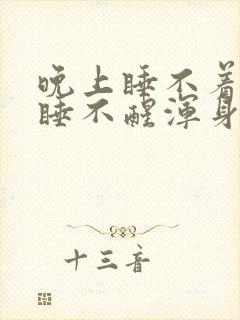 晚上睡不着
睡不醒浑身
十三音